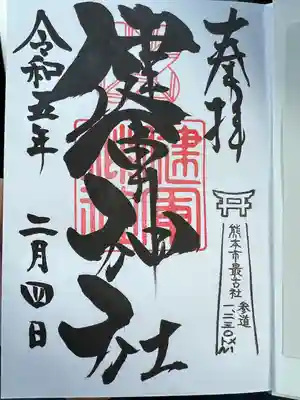 奉拝
熊本市最古社
参道
一二三〇
健軍神社
令和五年
二月四日